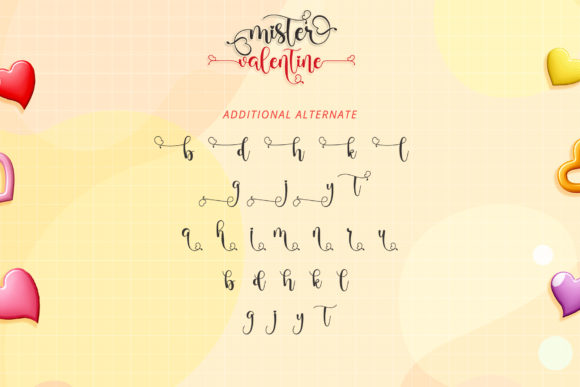 mister
valentine
ADDITIONAL ALTERNATE
b d h k l
g j y T
a h i m n r u
b d h k l
g j y T